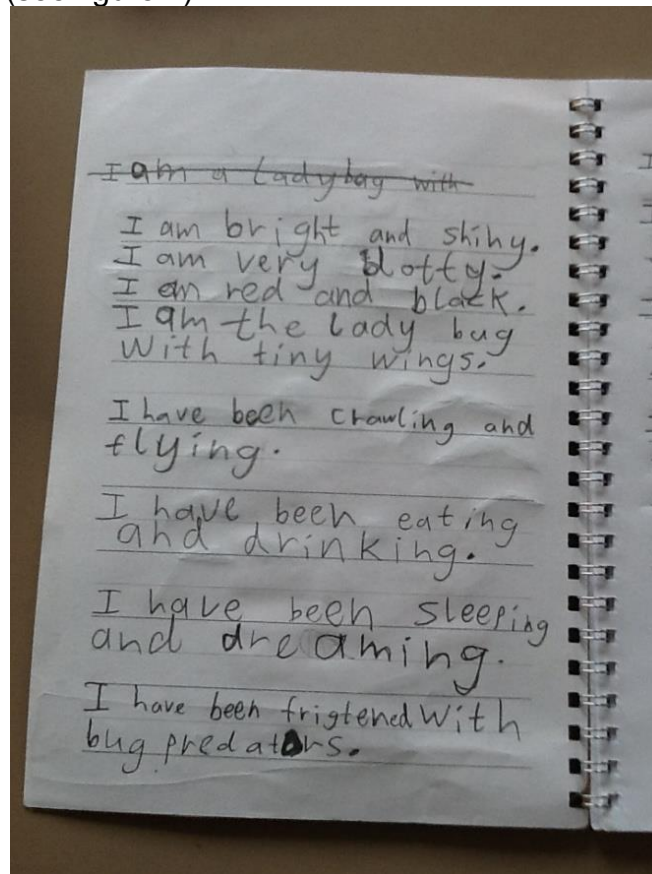 I am a ladybag with
I am bright and shihy.
I am very blotty.
I am red and black.
I am the lady bug
With tiny wings.
I have been crawling and
flying.
I have been eating
and drinking.
I have been sleeping
and dreaming.
I have been frigtened With
bug predators.